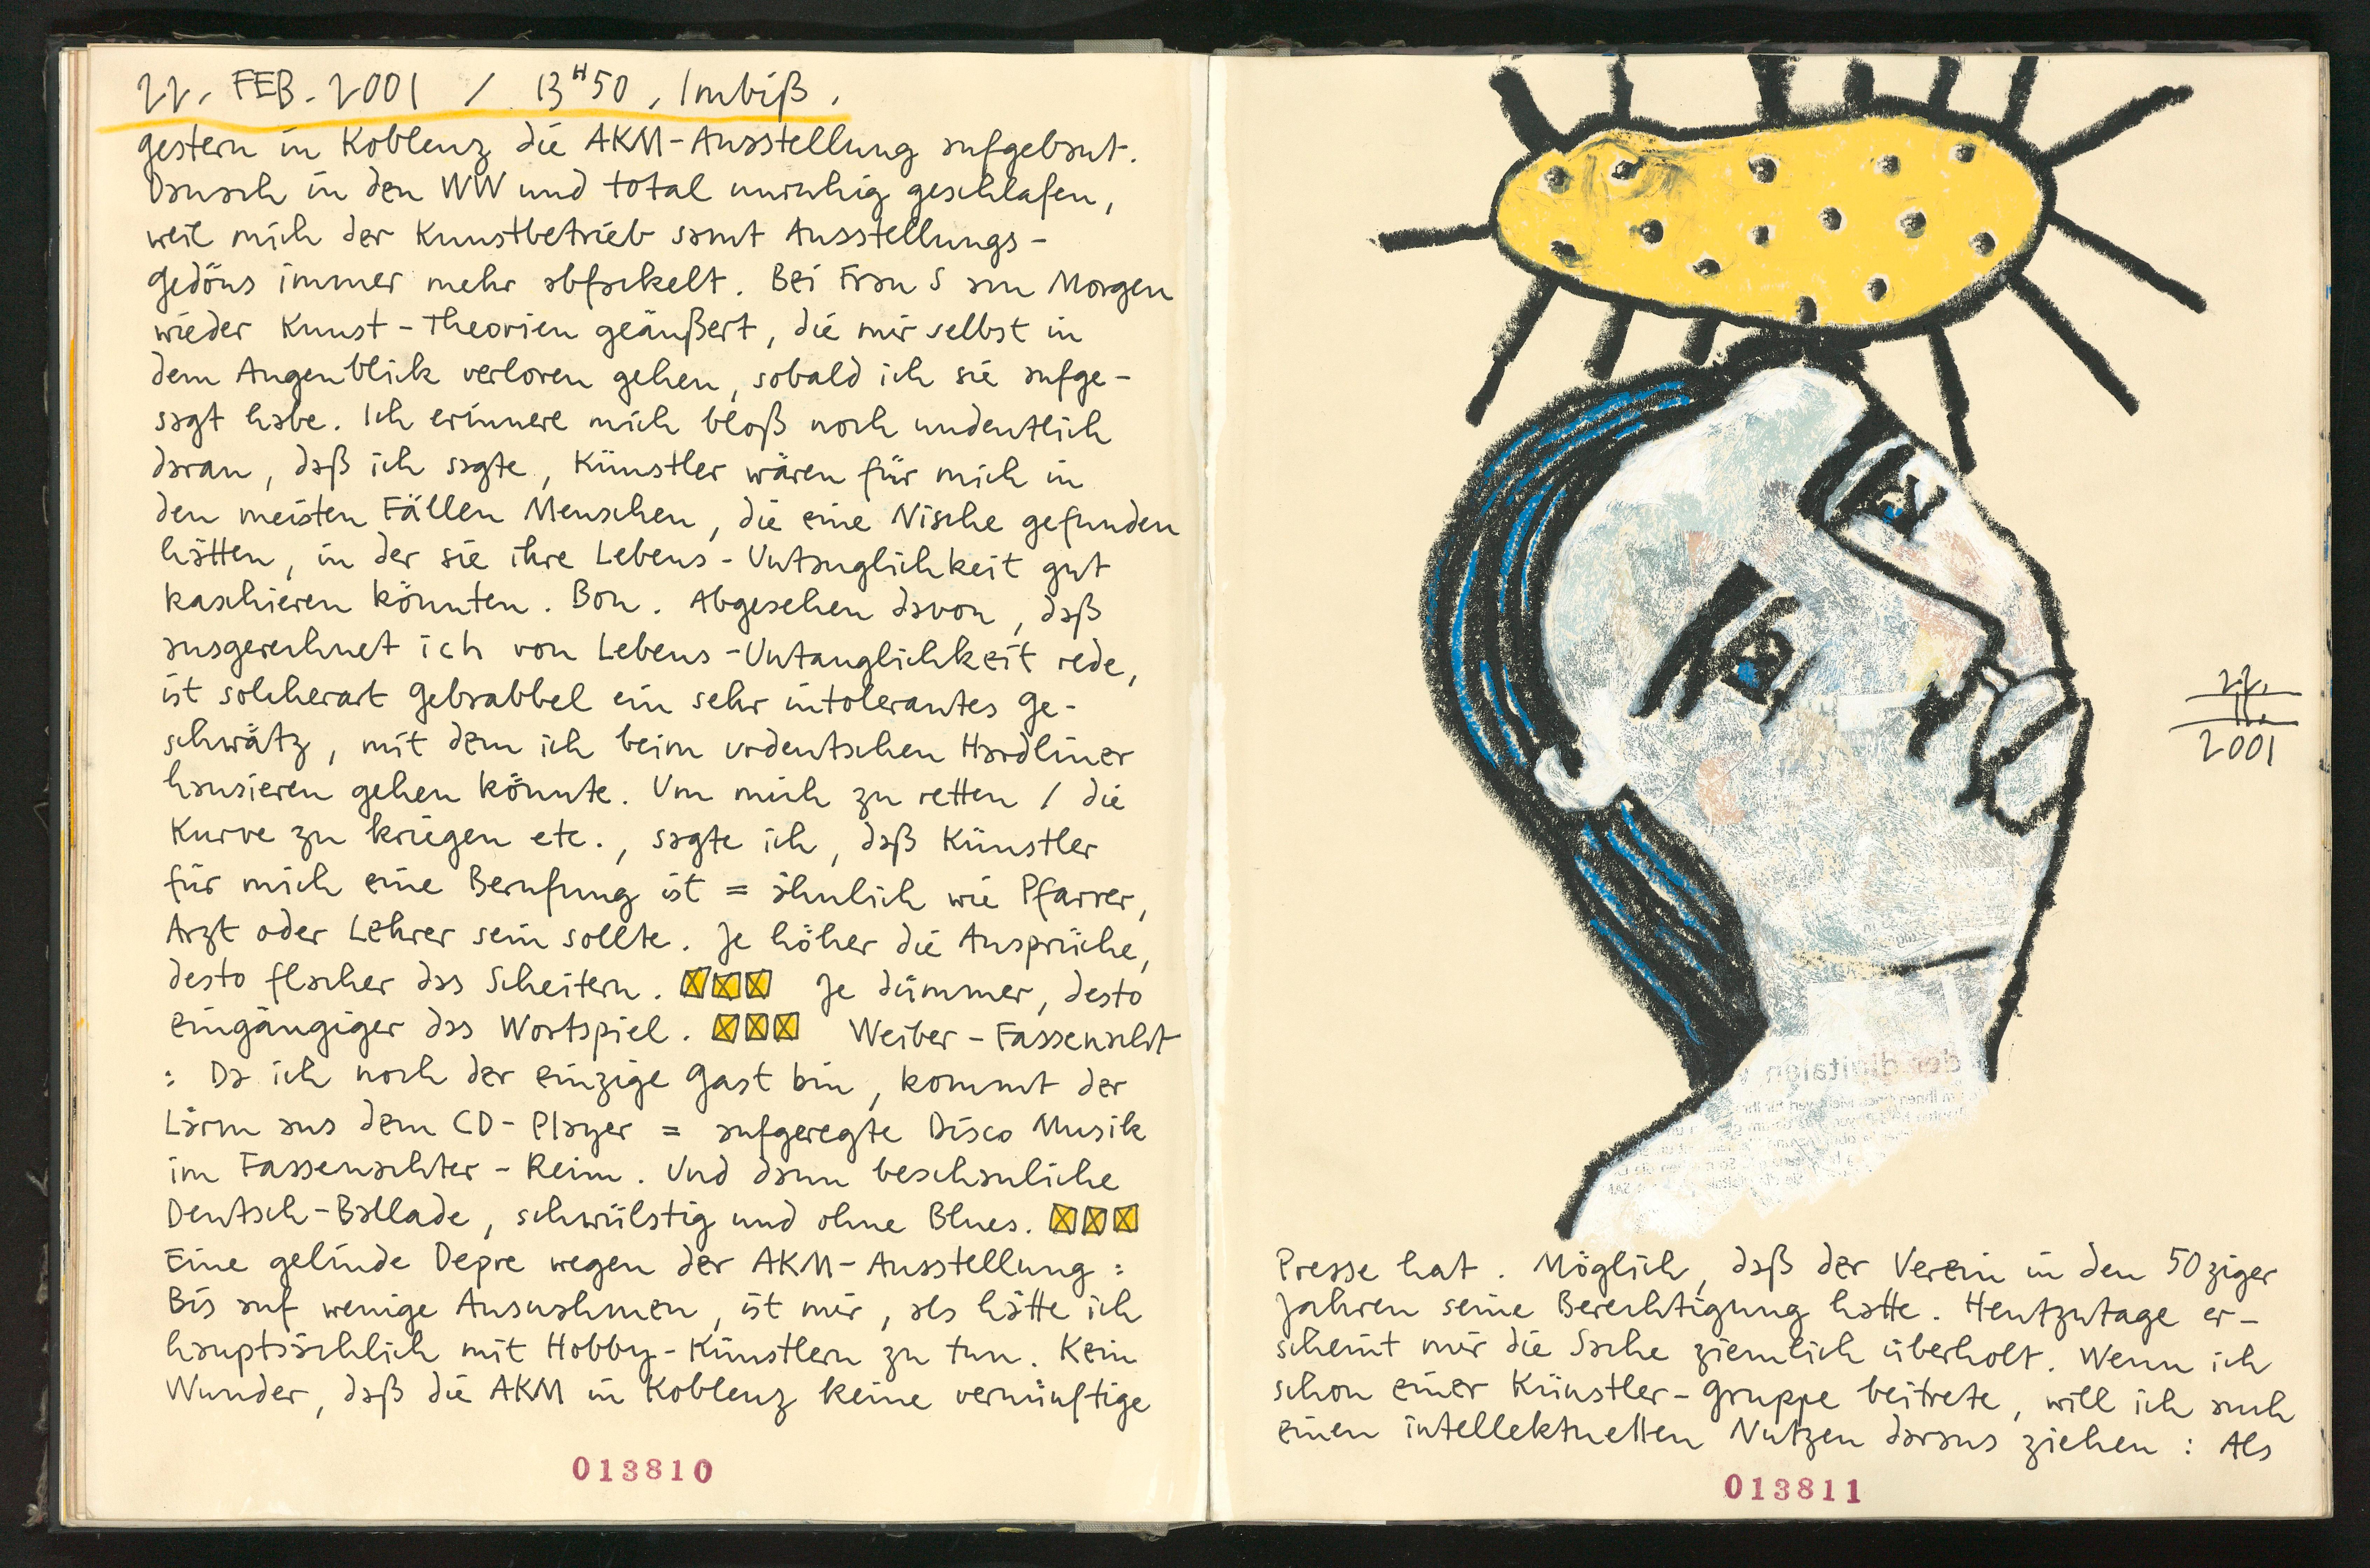 22. FEB. 2001 / 13H50, Imbiß.
gestern in Koblenz die AKM-Ausstellung aufgebaut.
Danach in den WW und total unruhig geschlafen,
weil mich der Kunstbetrieb samt Ausstellungs-
Gedöns immer mehr abfuckelt. Bei Frau S am Morgen
wieder Kunst-Theorien geäußert, die mir selbst in
dem Augenblick verloren gehen, sobald ich sie aufge-
sagt habe. Ich erinnere mich bloß noch undeutlich
daran, daß ich sagte, Künstler wären für mich in
den meisten Fällen Menschen, die eine Nische gefunden
hätten, in der sie ihre Lebens-Untauglichkeit gut
kaschieren könnten. Bon. Abgesehen davon, daß
ausgerechnet ich von Lebens-Untauglichkeit rede,
ist solcherart Gebrabbel ein sehr intolerantes Ge-
schwätz, mit dem ich beim urdeutschen Hardliner
hausieren gehen könnte. Um mich zu retten / die
Kurve zu kriegen etc., sagte ich, daß Künstler
für mich eine Berufung ist = ähnlich wie Pfarrer,
Arzt oder Lehrer sein sollte. Je höher die Ansprüche,
desto flacher das Scheitern. Je dümmer, desto
eingängiger das Wortspiel. Weiber-Fassenacht
: Da ich noch der einzige Gast bin, kommt der
Lärm aus dem CD-Player = aufgeregte Disco Musik
im Fassenachter-Reim. Und dann beschauliche
Deutsch-Ballade, schwülstig und ohne Blues.
Eine gelinde Depre wegen der AKM-Ausstellung:
Bis auf wenige Ausnahmen, ist mir, als hätte ich
hauptsächlich mit Hobby-Künstlern zu tun. Kein
Wunder, daß die AKM in Koblenz keine vernünftige
013810
22.
II.
2001
Presse hat. Möglich, daß der Verein in den 50ziger
Jahren seine Berechtigung hatte. Heutzutage er-
scheint mir die Sache ziemlich überholt. Wenn ich
schon einer Künstler-Gruppe beitrete, will ich auch
einen intellektuellen Nutzen daraus ziehen: Als
013811